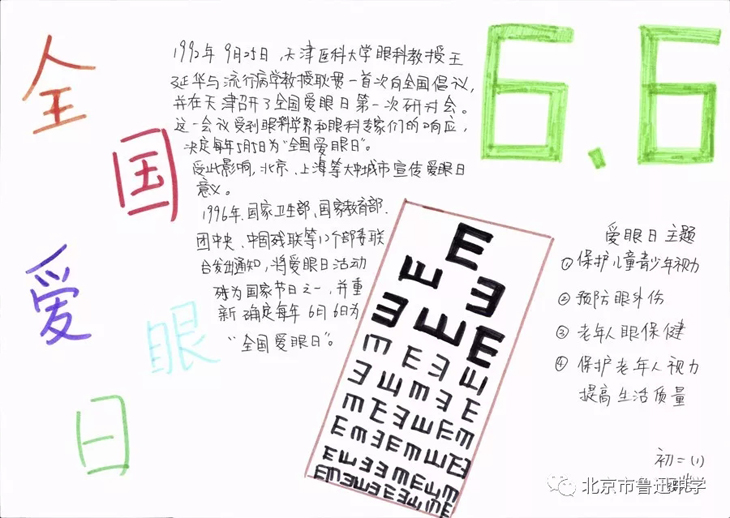 全
国
爱
眼
日
6.6
1992年9月25日,天津医科大学眼科教授王
延华与流行病学教授耿贯一首次向全国倡议,
并在天津召开了全国爱眼日第一次研讨会。
这一会议受到眼科学界和眼科专家们的响应,
决定每年5月5日为“全国爱眼日”。
受此影响,北京、上海等大中城市宣传爱眼日
意义。
1996年,国家卫生部、国家教育部、
团中央、中国残联等12个部委联
合发出通知,将爱眼日活动
确为国家节日之一,并重
新确定每年6月6日为
“全国爱眼日”。
E
E E
E E E
爱眼日主题
①保护儿童青少年视力
②预防眼外伤
③老年人眼保健
④保护老年人视力
提高生活质量
初二(1)
北京市鲁迅中学